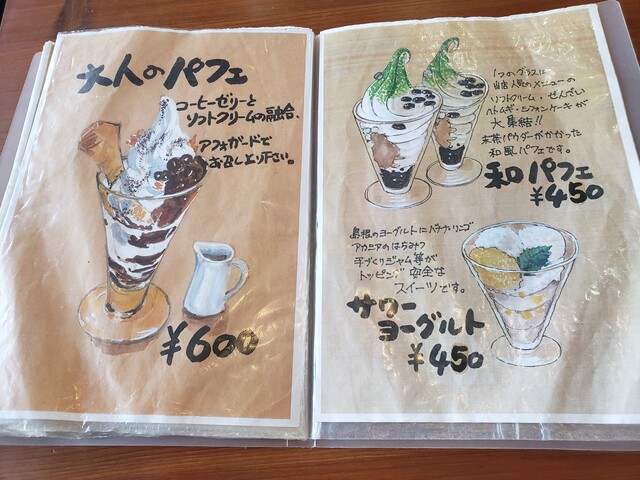 大人のパフェ
コーヒーゼリーと
ソフトクリームの融合、
アフォガードで
お召し上り下さい。
¥600
1つのグラスに
当店人気のメニューの
ソフトクリーム・ぜんざい
ハトムギ・シフォンケーキが
大集結!!
抹茶パウダーがかかった
和風パフェです。
和パフェ
¥450
島根のヨーグルトにバナナ、リンゴ
アカシアのはちみつ
手づくりジャム等が
トッピング 安全な
スイーツです。
サワー
ヨーグルト
¥450